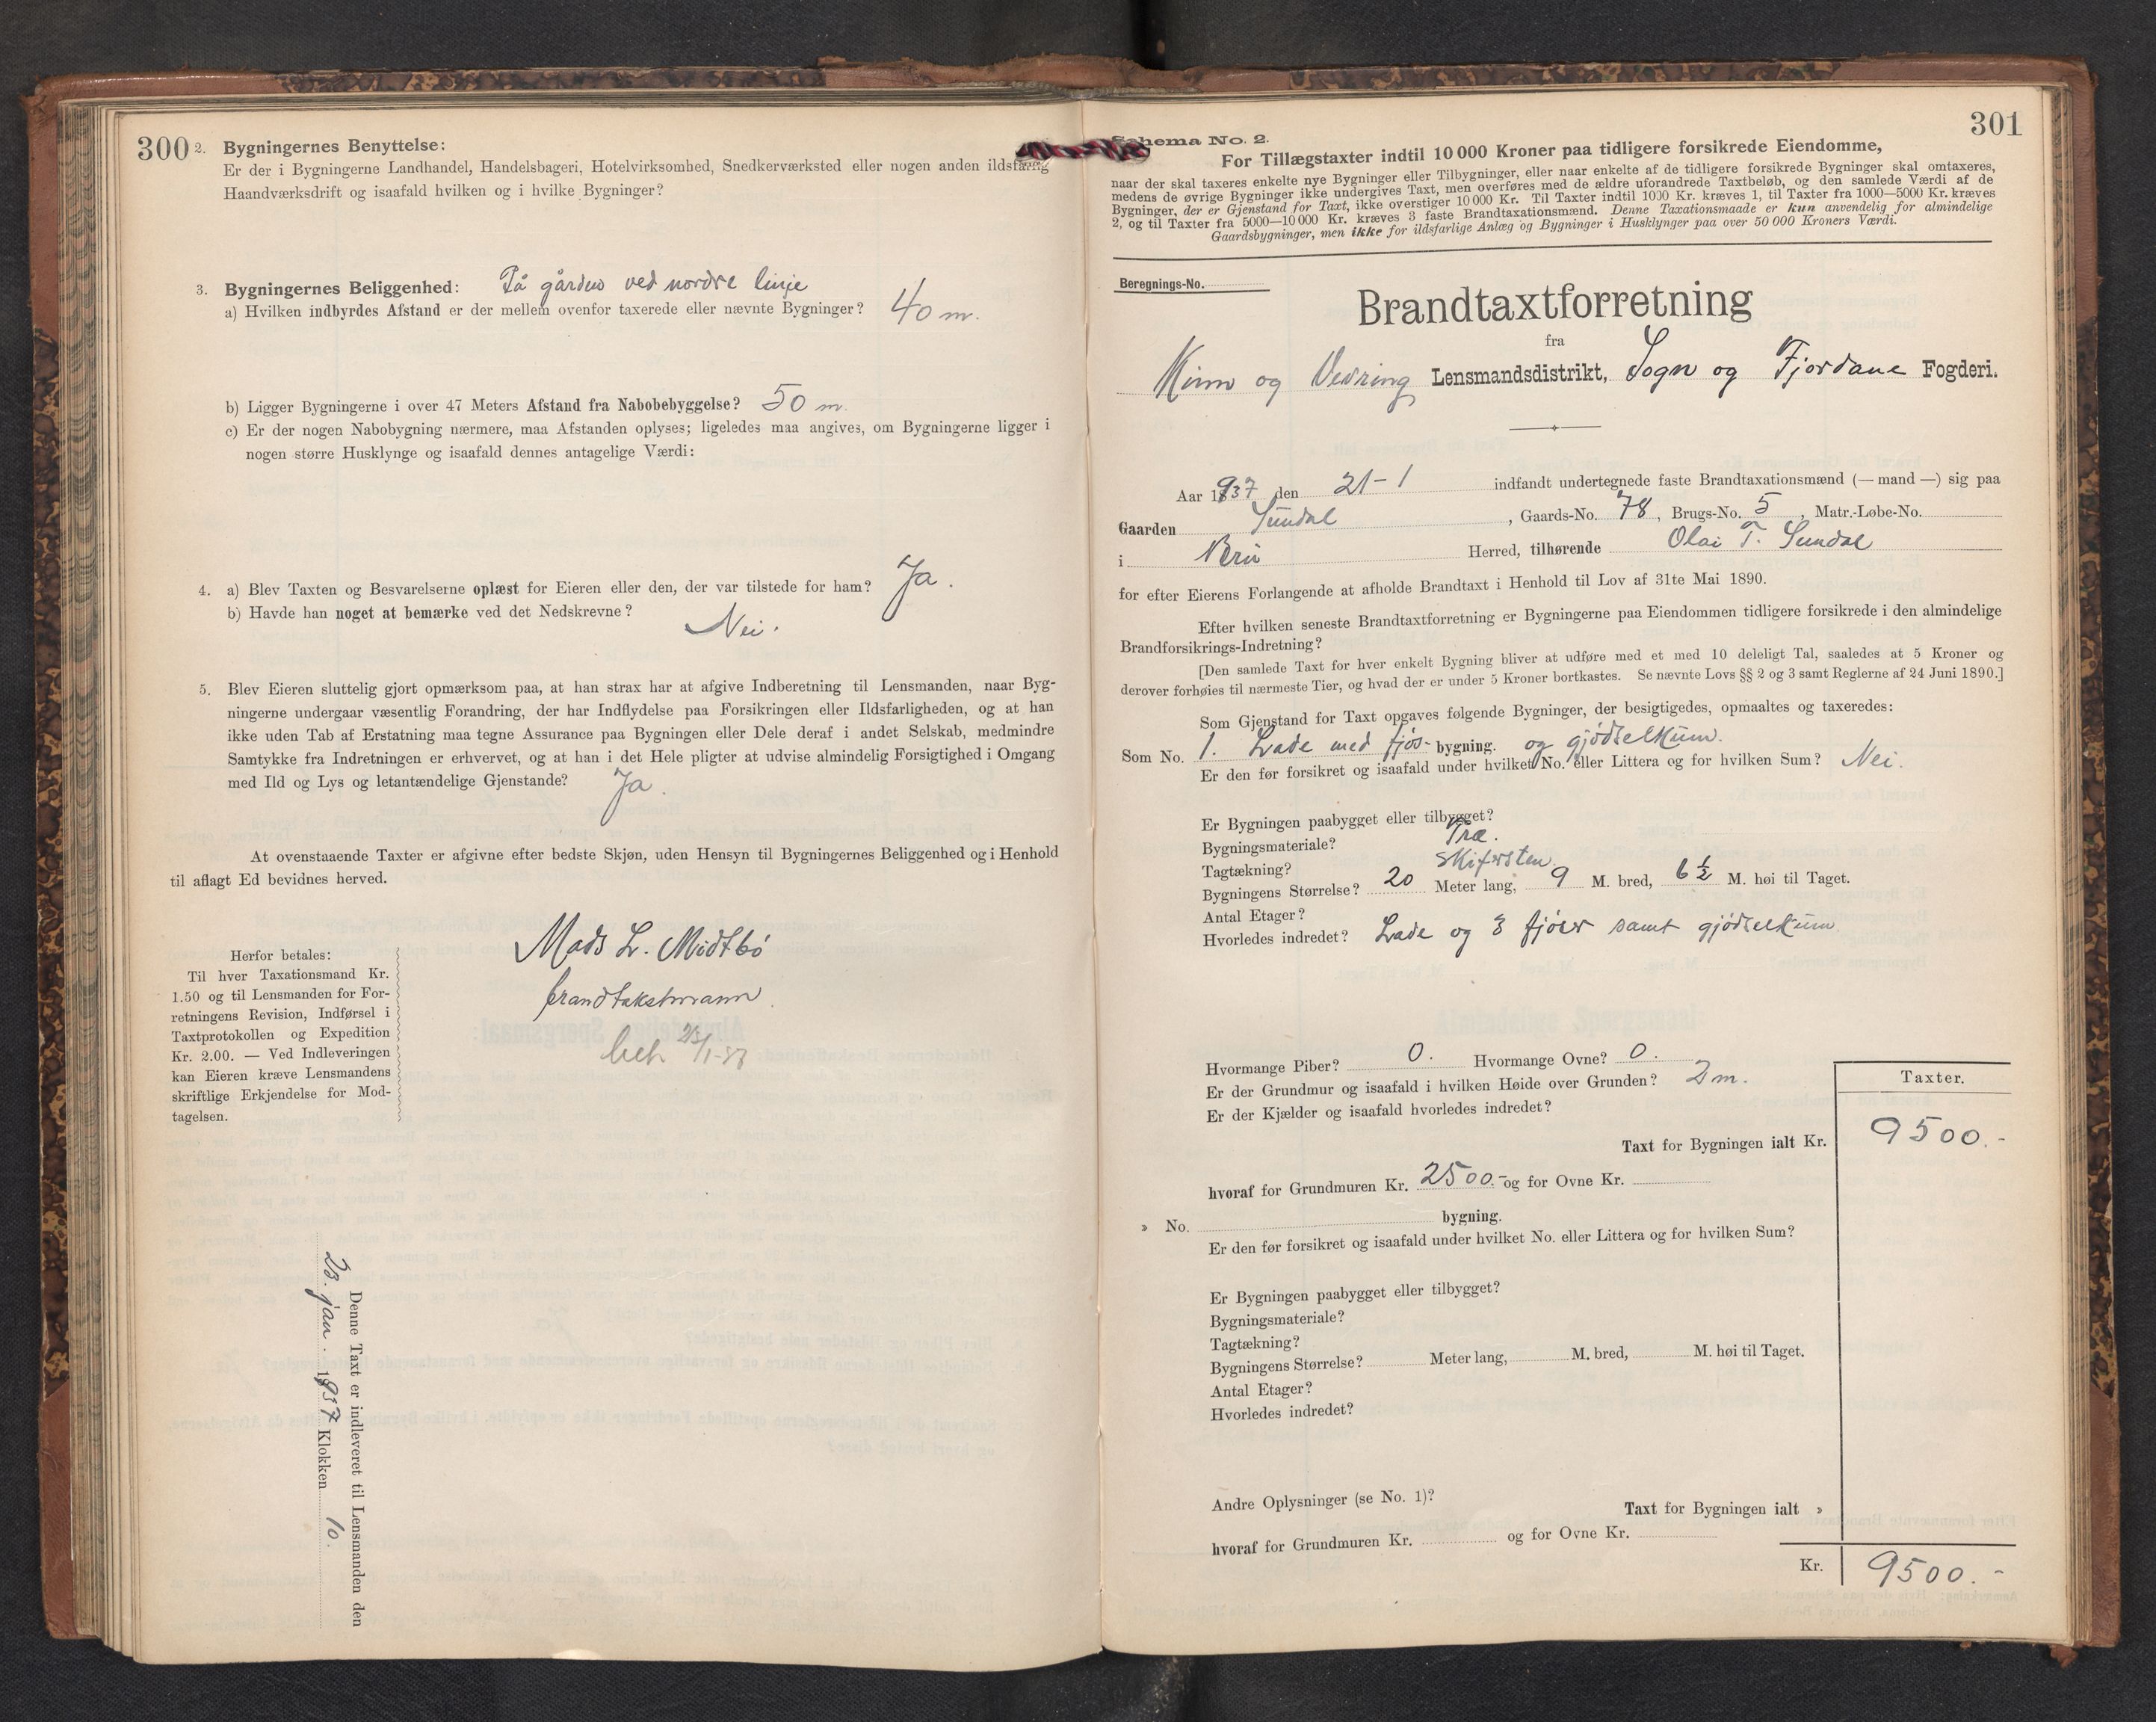 300
2. Bygningernes Benyttelse:
Er der i Bygningerne Landhandel, Handelsbageri, Hotelvirksomhed, Snedkerværksted eller nogen anden ildsfarlig
Haandværksdrift og isaafald hvilken og i hvilke Bygninger?
3. Bygningernes Beliggenhed: På gården ved nordre linje
a) Hvilken indbyrdes Afstand er der mellem ovenfor taxerede eller nævnte Bygninger? 40 m.
b) Ligger Bygningerne i over 47 Meters Afstand fra Nabobebyggelse? 50 m.
c) Er der nogen Nabobygning nærmere, maa Afstanden oplyses; ligeledes maa angives, om Bygningerne ligger i
nogen større Husklynge og isaafald dennes antagelige Værdi:
4. a) Blev Taxten og Besvarelserne oplæst for Eieren eller den, der var tilstede for ham? Ja.
b) Havde han noget at bemærke ved det Nedskrevne?
Nei.
5. Blev Eieren sluttelig gjort opmærksom paa, at han strax har at afgive Indberetning til Lensmanden, naar Byg-
ningerne undergaar væsentlig Forandring, der har Indflydelse paa Forsikringen eller Ildsfarligheden, og at han
ikke uden Tab af Erstatning maa tegne Assurance paa Bygningen eller Dele deraf i andet Selskab, medmindre
Samtykke fra Indretningen er erhvervet, og at han i det Hele pligter at udvise almindelig Forsigtighed i Omgang
med Ild og Lys og letantændelige Gjenstande? Ja.
At ovenstaaende Taxter er afgivne efter bedste Skjøn, uden Hensyn til Bygningernes Beliggenhed og i Henhold
til aflagt Ed bevidnes herved.
Mads L. Midtbö
brandtakstmann.
bet. 23/1-37
Herfor betales:
Til hver Taxationsmand Kr.
1.50 og til Lensmanden for For-
retningens Revision, Indførsel i
Taxtprotokollen og Expedition
Kr. 2.00. — Ved Indleveringen
kan Eieren kræve Lensmandens
skriftlige Erkjendelse for Mod-
tagelsen.
Denne Taxt er indleveret til Lensmanden den
23. jan. 1937 Klokken 10.
301
Schema No. 2.
For Tillægstaxter indtil 10 000 Kroner paa tidligere forsikrede Eiendomme,
naar der skal taxeres enkelte nye Bygninger eller Tilbygninger, eller naar enkelte af de tidligere forsikrede Bygninger skal omtaxeres,
medens de øvrige Bygninger ikke undergives Taxt, men overføres med de ældre uforandrede Taxtbeløb, og den samlede Værdi af de
Bygninger, der er Gjenstand for Taxt, ikke overstiger 10 000 Kr. Til Taxter indtil 1000 Kr. kræves 1, til Taxter fra 1000—5000 Kr. kræves
2, og til Taxter fra 5000—10 000 Kr. kræves 3 faste Brandtaxationsmænd. Denne Taxationsmaade er kun anvendelig for almindelige
Gaardsbygninger, men ikke for ildsfarlige Anlæg og Bygninger i Husklynger paa over 50 000 Kroners Værdi.
Beregnings-No.
Brandtaxtforretning
fra
Kinn og Vevring Lensmandsdistrikt, Sogn og Fjordane Fogderi.
Aar 1937 den 21-1 indfandt undertegnede faste Brandtaxationsmænd (— mand —) sig paa
Gaarden Sundal, Gaards-No. 78, Brugs-No. 5, Matr.-Løbe-No.
i Bru Herred, tilhørende Olai T. Sundal
for efter Eierens Forlangende at afholde Brandtaxt i Henhold til Lov af 31te Mai 1890.
Efter hvilken seneste Brandtaxtforretning er Bygningerne paa Eiendommen tidligere forsikrede i den almindelige
Brandforsikrings-Indretning?
[Den samlede Taxt for hver enkelt Bygning bliver at udføre med et med 10 deleligt Tal, saaledes at 5 Kroner og
derover forhøies til nærmeste Tier, og hvad der er under 5 Kroner bortkastes. Se nævnte Lovs §§ 2 og 3 samt Reglerne af 24 Juni 1890.]
Som Gjenstand for Taxt opgaves følgende Bygninger, der besigtigedes, opmaaltes og taxeredes:
Som No. 1. Lade med fjös- bygning. og gjödselkum.
Er den før forsikret og isaafald under hvilket No. eller Littera og for hvilken Sum? Nei.
Er Bygningen paabygget eller tilbygget?
Bygningsmateriale? Træ.
Tagtækning? Skifersten.
Bygningens Størrelse? 20 Meter lang, 9 M. bred, 6 ½ M. høi til Taget.
Antal Etager?
Hvorledes indredet? Lade og 3 fjöser samt gjödselkum.
Hvormange Piber? 0. Hvormange Ovne? 0.
Er der Grundmur og isaafald i hvilken Høide over Grunden? 2 m.
Er der Kjælder og isaafald hvorledes indredet?
Taxter.
Taxt for Bygningen ialt Kr. 9500.-
hvoraf for Grundmuren Kr. 2500.- og for Ovne Kr.
» No. bygning.
Er den før forsikret og isaafald under hvilket No. eller Littera og for hvilken Sum?
Er Bygningen paabygget eller tilbygget?
Bygningsmateriale?
Tagtækning?
Bygningens Størrelse? Meter lang, M. bred, M. høi til Taget.
Antal Etager?
Hvorledes indredet?
Andre Oplysninger (se No. 1)?
Taxt for Bygningen ialt »
hvoraf for Grundmuren Kr. og for Ovne Kr.
Kr. 9500.-